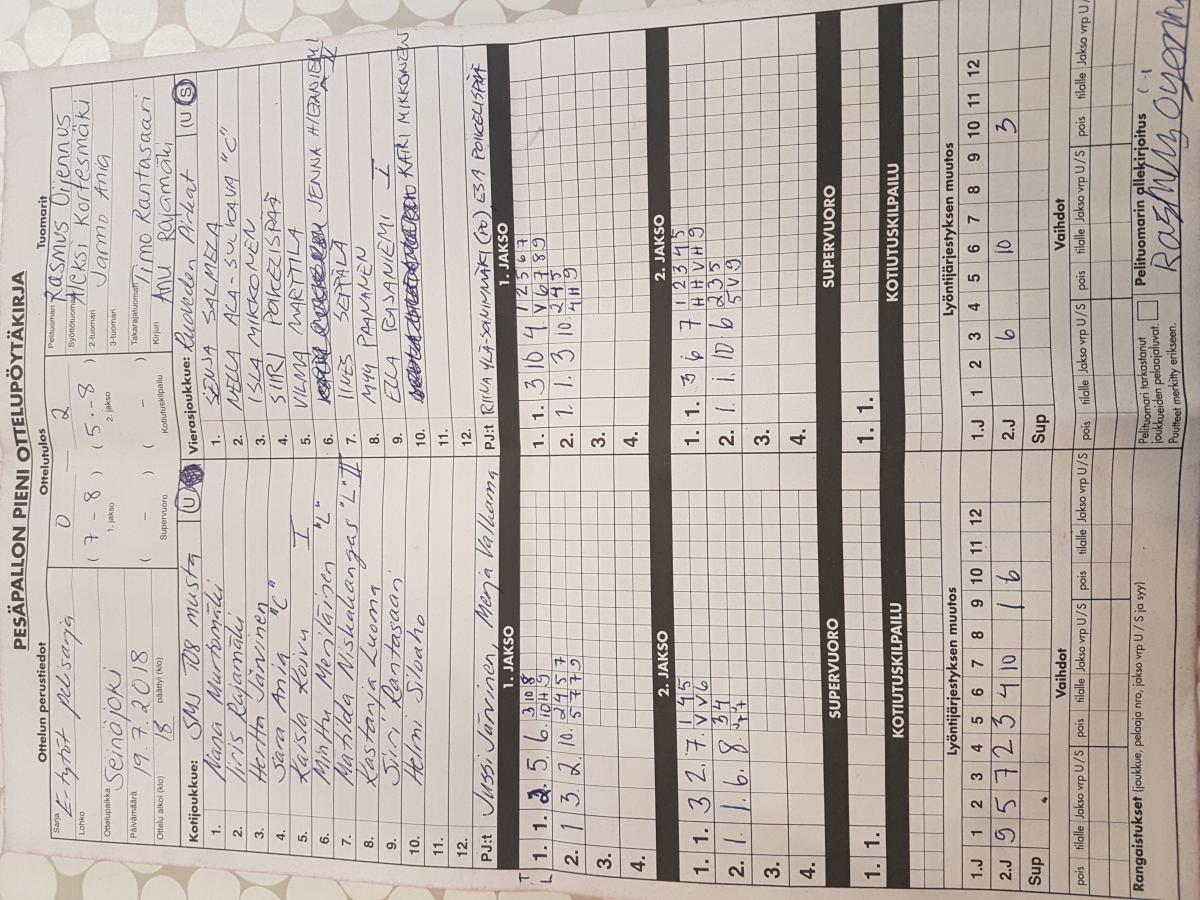 PESÄPALLON PIENI OTTELUPÖYTÄKIRJA
Ottelun perustiedot
Sarja E-tytöt pelisarja
Lohko
Ottelupaikka Seinäjoki
Päivämäärä 19.7.2018
Ottelu alkoi (klo) 18 päättyi (klo)
Ottelutulos
0 2
(7 - 8) (5 - 8)
1. jakso 2. jakso
( - ) ( - )
Supervuoro Kotiutuskilpailu
Tuomarit
Pelituomari Rasmus Oijennus
Syöttötuomari Aleksi Kortesmäki
2-tuomari Jarmo Ania
3-tuomari
Takarajatuomari Timo Rantasaari
Kirjuri Anu Rajamäki
Kotijoukkue: SMJ T08 musta U
1. Nana Murtomäki
2. Iiris Rajamäki
3. Hertta Järvinen
4. Sara Ania "C"
5. Kaisla Koivu I
6. Minttu Meriläinen "L"
7. Matilda Niskakangas "L" II
8. Kastania Luoma
9. Siiri Rantasaari
10. Helmi Silvaho
11.
12.
PJ:t Jussi Järvinen, Merja Valkama
Vierasjoukkue: Ruoveden Pirkat U S
1. SENJA SALMELA
2. NELLA ALA-SULKAVA "C"
3. ISLA MIKKONEN
4. SIIRI POIKELISPÄÄ
5. VILMA MARTTILA
6. JENNA HIETANIEMI
7. IINES SEPPÄLÄ
8. MYY PAANANEN
9. ELLA RAJANIEMI I
10. KAIRI MIKKONEN
11.
12.
PJ:t RIIKKA YLÄ-SOININMÄKI (PO) ESA POIKELISPÄÄ
1. JAKSO
T
L
1. 1. 2. 5. 6. 3 10 8
10 H 9
2. 1 3. 2. 10. 2 4 5 7
5 7 7 9
3.
4.
1. JAKSO
1. 1. 3 10 4. 1 2 5 6 7
V 6 7 8 9
2. 1. 3 10. 2 4 5
4 H 9
3.
4.
2. JAKSO
1. 1. 3 2. 7. 1 4 5
V V 6
2. 1. 6. 8. 3 4
3.
4.
2. JAKSO
1. 1. 3 6 7 1 2 3 4 5
H H V H 9
2. 1. 10 6 2 3 5
5 V 9
3.
4.
SUPERVUORO
1. 1.
SUPERVUORO
1. 1.
KOTIUTUSKILPAILU
KOTIUTUSKILPAILU
Lyöntijärjestyksen muutos
1.J 1 2 3 4 5 6 7 8 9 10 11 12
2.J 9 5 7 2 3 4 10 1 6
Sup
Lyöntijärjestyksen muutos
1.J 1 2 3 4 5 6 7 8 9 10 11 12
2.J 6 10 3
Sup
Vaihdot
pois tilalle Jakso vrp U/S pois tilalle Jakso vrp U/S pois tilalle Jakso vrp U/S
Vaihdot
pois tilalle Jakso vrp U/S pois tilalle Jakso vrp U/S pois tilalle Jakso vrp U/
Rangaistukset (joukkue, pelaaja nro, jakso vrp U / S ja syy)
Pelituomari tarkastanut
joukkueiden pelaajaluvat.
Puutteet merkitty erikseen.
Pelituomarin allekirjoitus
Rasmus Oijennus